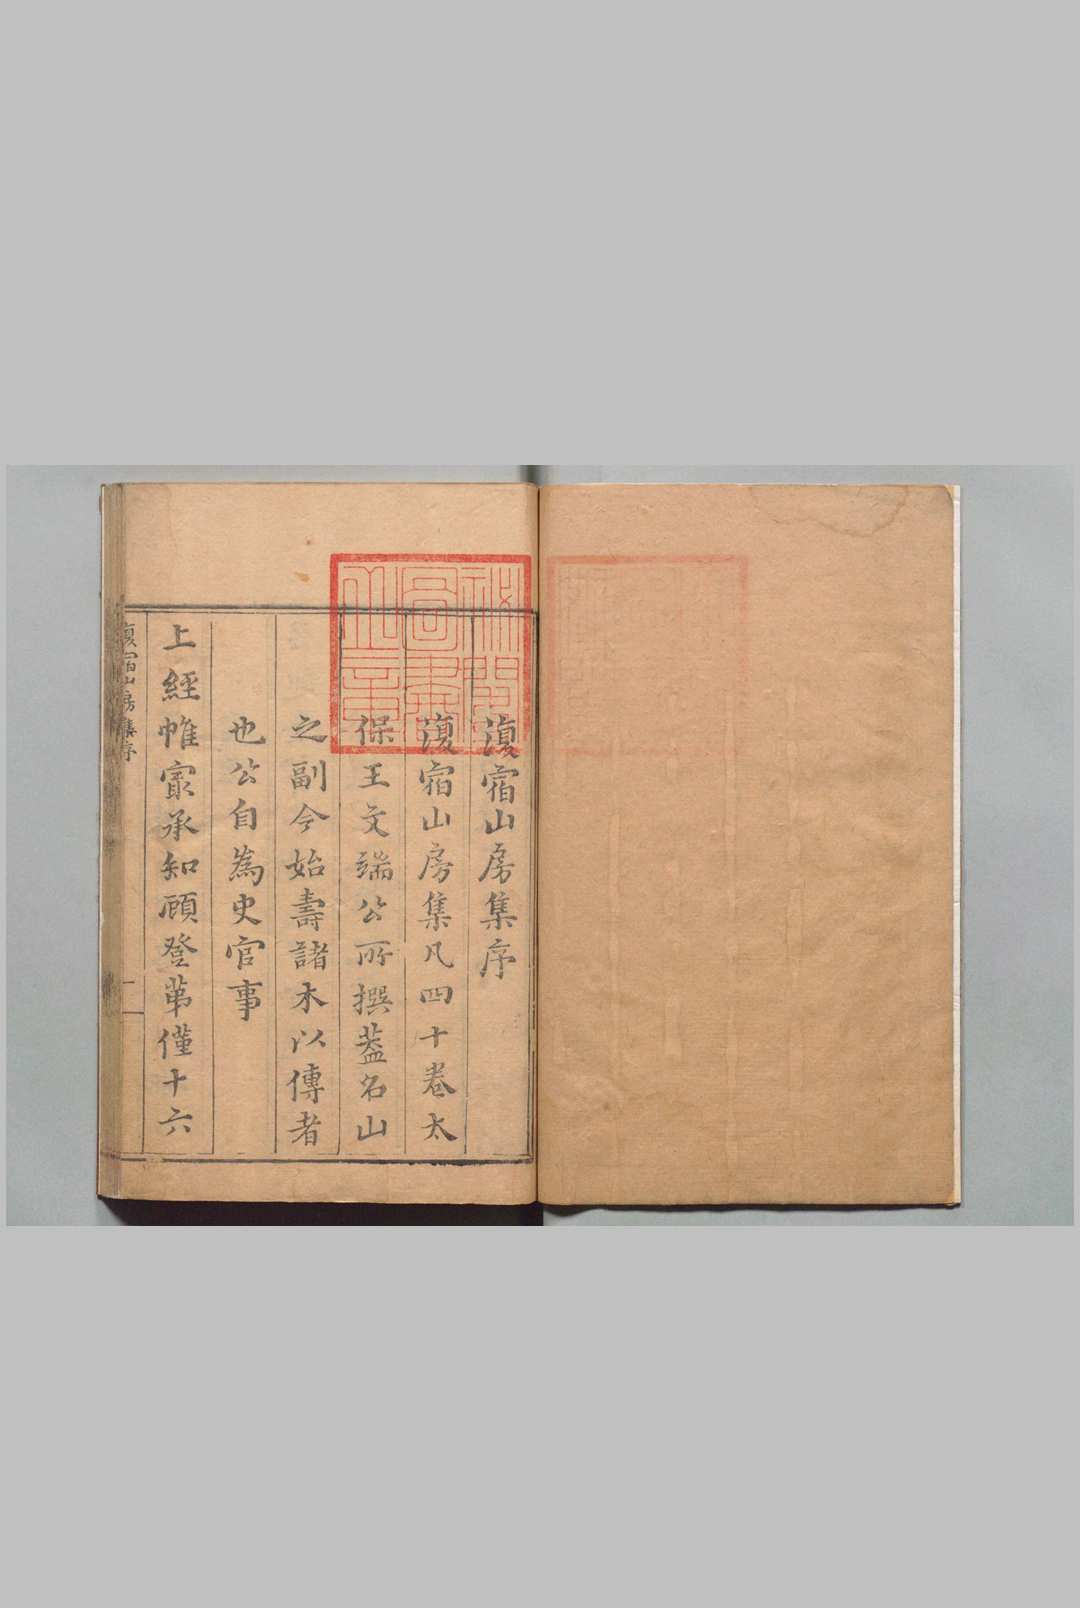 復宿山房集序
復宿山房集凡四十卷太
保王文端公所撰葢名山
之副今始壽諸木以傳者
也公自為史官事
上經帷寔承知顧登第僅十六
復宿山房集序
一
秘閣
圖書
之章